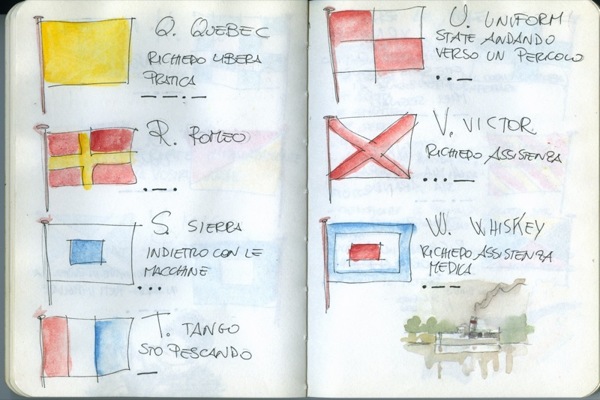 Q. QUEBEC
RICHIEDO LIBERA
PRATICA
——·—
R. ROMEO
·—·
S SIERRA
INDIETRO CON LE
MACCHINE
···
T. TANGO
STO PESCANDO
—
U. UNIFORM
STATE ANDANDO
VERSO UN PERICOLO
··—
V. VICTOR
RICHIEDO ASSISTENZA
···—
W. WHISKEY
RICHIEDO ASSISTENZA
MEDICA
·——